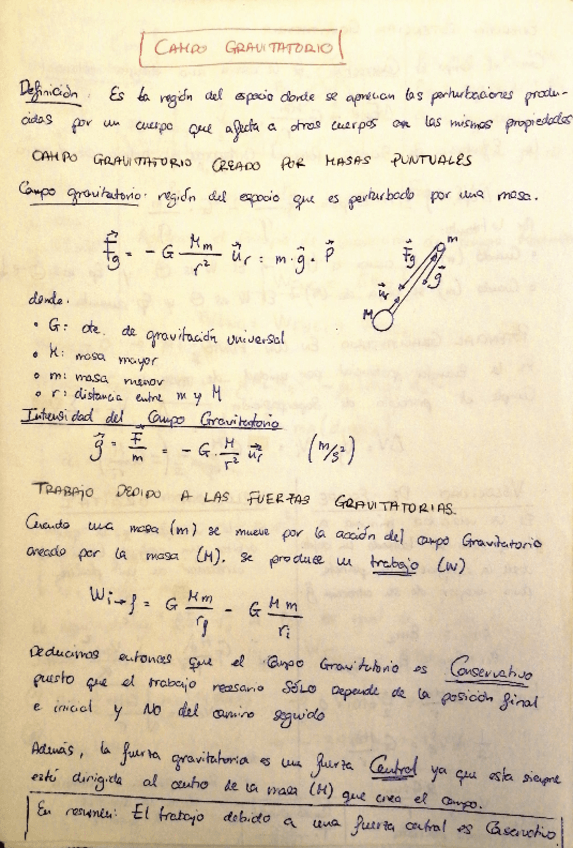 CAMPO GRAVITATORIO
Definición. Es la región del espacio donde se aprecian las perturbaciones produ-
cidas por un cuerpo que afecta a otros cuerpos con las mismas propiedades
CAMPO GRAVITATORIO CREADO POR MASAS PUNTUALES
Campo gravitatorio. región del espacio que es perturbado por una masa.
F⃗g = - G Mm/r² u⃗r = m · g⃗ = P⃗
m
F⃗g
g⃗
u⃗r
M
donde.
• G: cte. de gravitación universal
• M: masa mayor
• m: masa menor
• r: distancia entre m y M
Intensidad del Campo Gravitatorio
g⃗ = F⃗/m = - G · M/r² u⃗r (m/s²)
TRABAJO DEBIDO A LAS FUERZAS GRAVITATORIAS.
Cuando una masa (m) se mueve por la acción del campo Gravitatorio
creado por la masa (M). se produce un trabajo (W)
Wi→f = G Mm/rf - G Mm/ri
Deducimos entonces que el Campo Gravitatorio es Conservativo
puesto que el trabajo necesario SÓLO Depende de la posición final
e inicial y NO del camino seguido
Además, la fuerza gravitatoria es una fuerza Central ya que esta siempre
esté dirigida al centro de la masa (M) que crea el campo.
En resumen: El trabajo debido a una fuerza central es Conservativo.